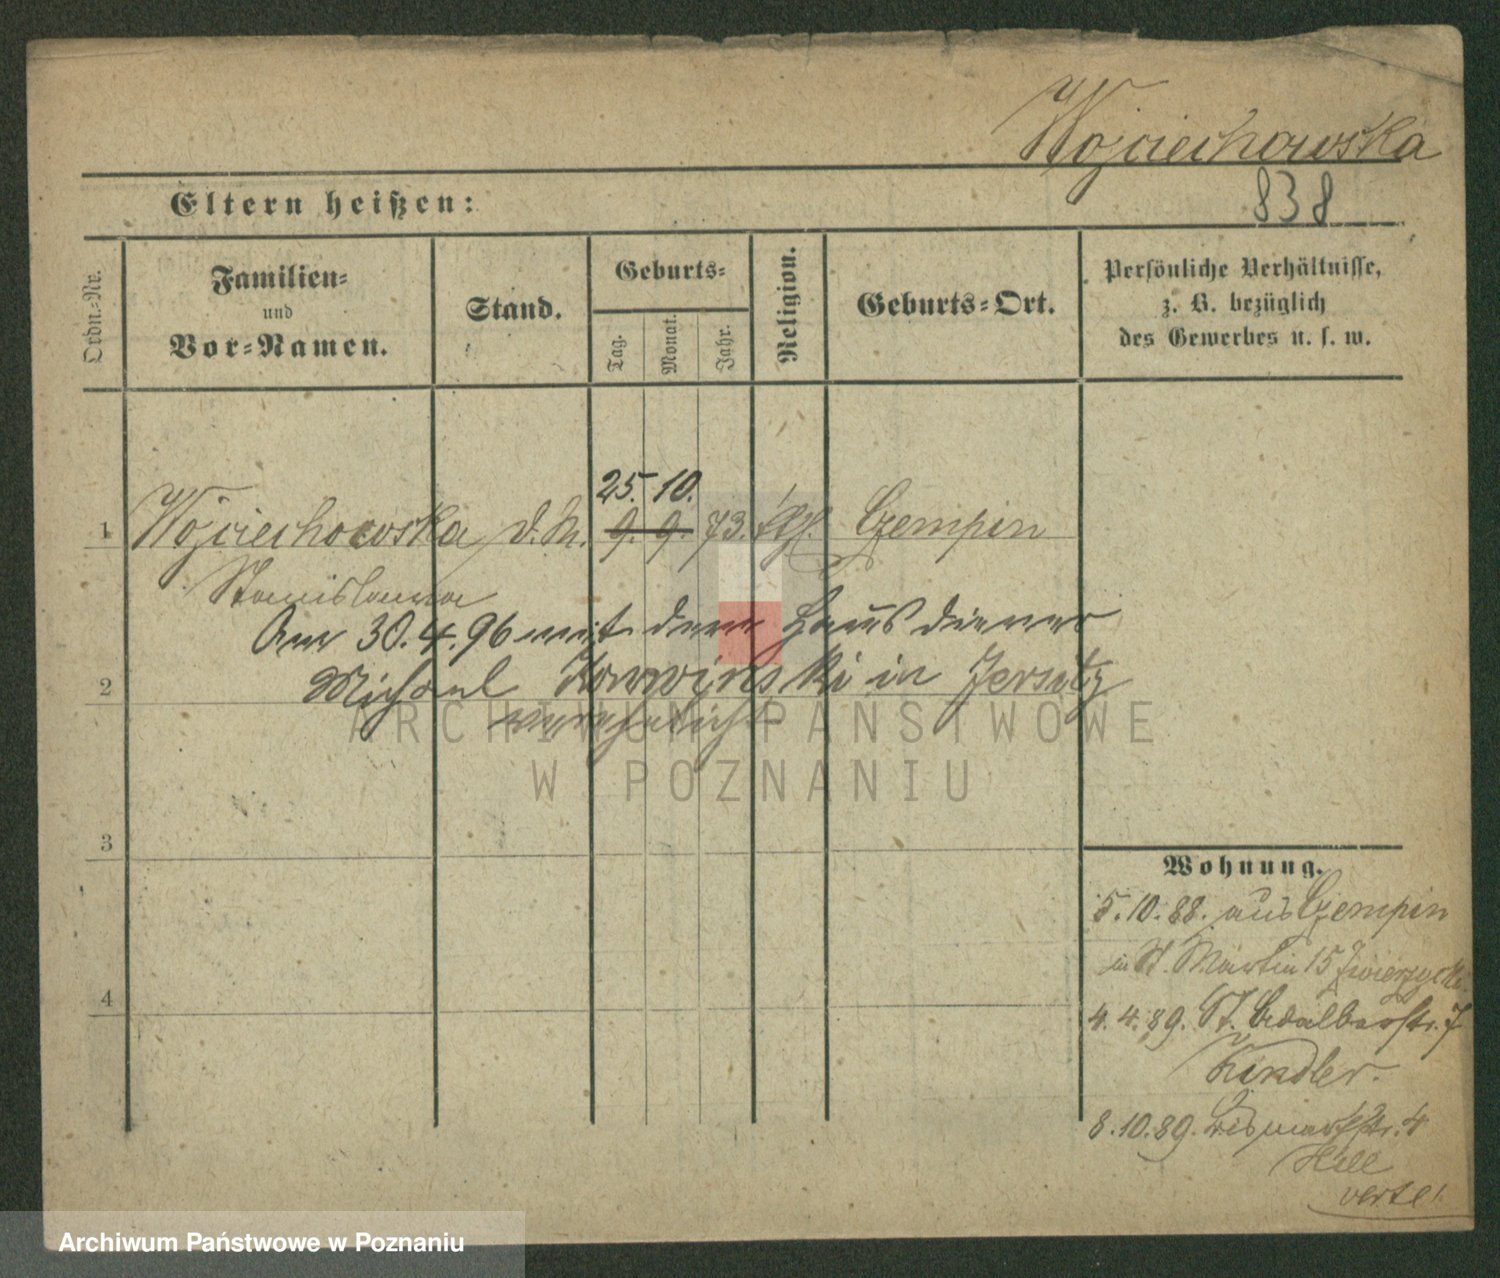 Wojciechowska
838
Eltern heißen:
Ordn.-Nr.
Familien-
und
Vor-Namen.
Stand.
Geburts-
Tag.
Monat.
Jahr.
Religion.
Geburts-Ort.
Persönliche Verhältnisse,
z. B. bezüglich
des Gewerbes u. s. w.
25. 10.
1 Wojciechowska d. M. 9. 9. 73. kth. Czempin
Stanislawa
Am 30.4.96 mit dem Hausdiener
2 Michael in Jersitz
verehelicht
ARCHIWUM PAŃSTWOWE
W POZNANIU
3
4
Wohnung.
5.10.88. aus Czempin
in St. Martin 15 Zwierzycki
4.4.89. St. Adalbertstr. 7
Kindler.
8.10.89. Bismarckstr. 4
Hill
verte!
Archiwum Państwowe w Poznaniu